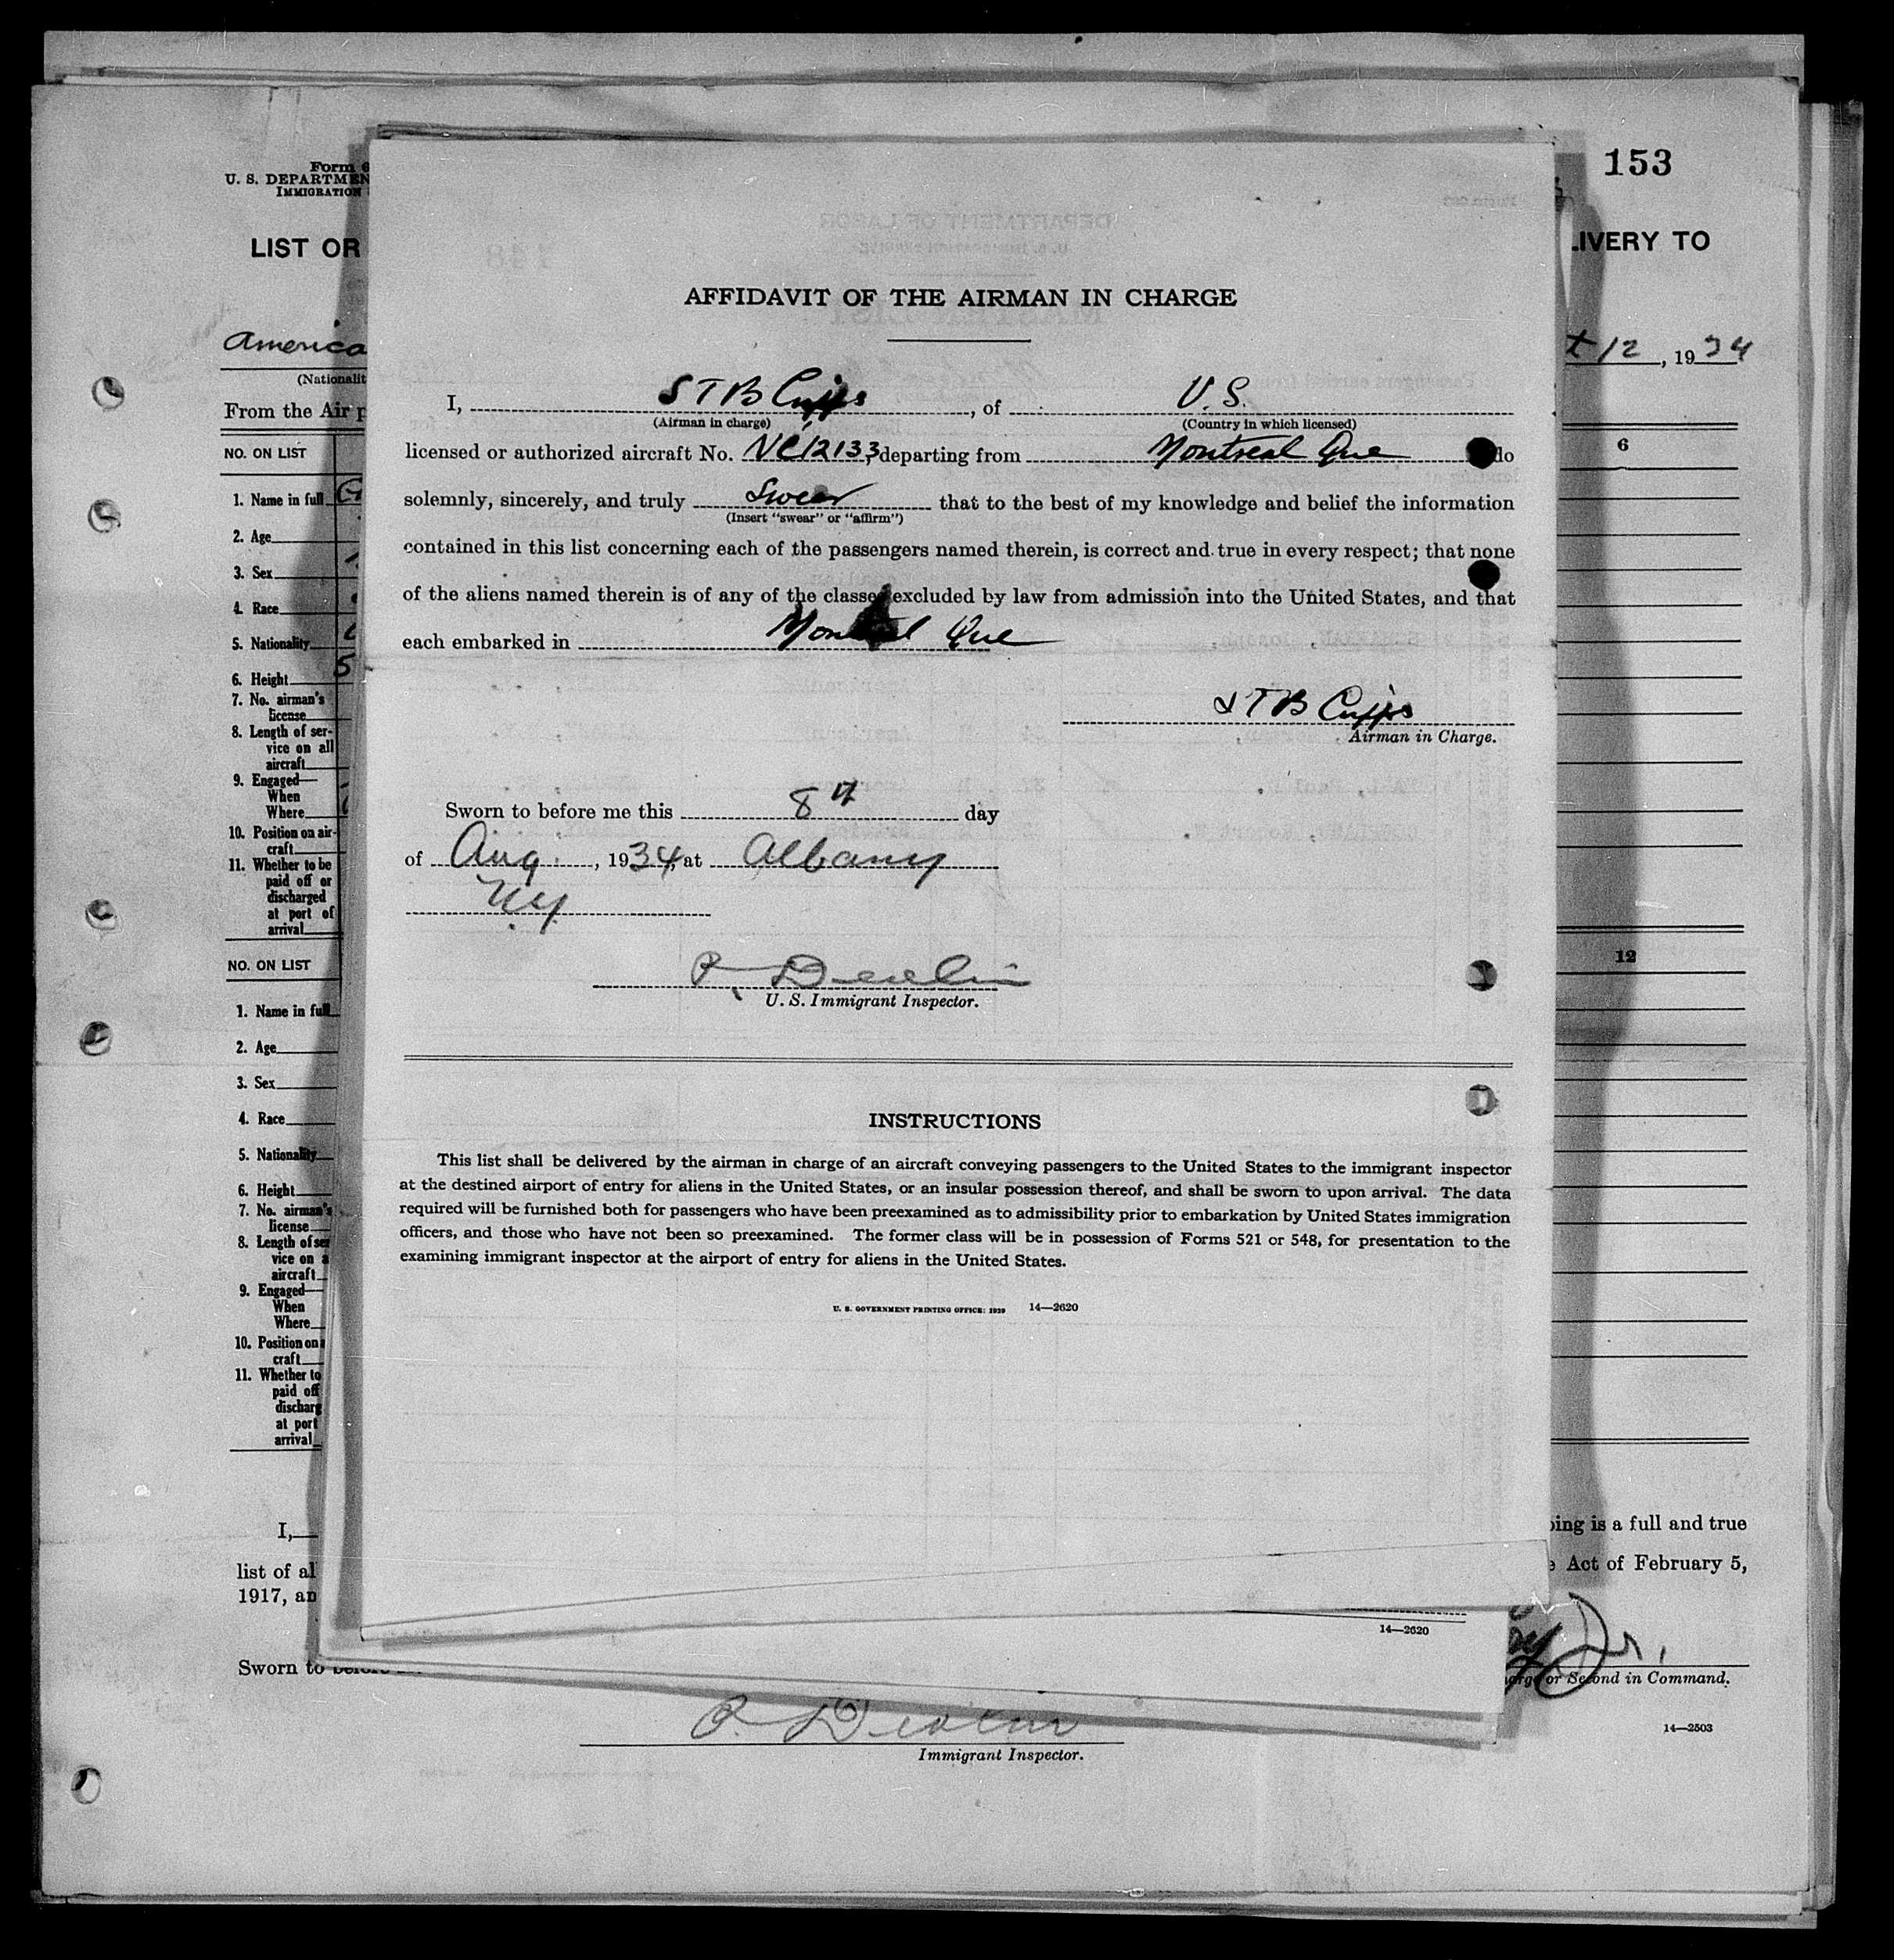 Form 6
U. S. DEPARTMEN
IMMIGRATION
153
LIST OR
LIVERY TO
America
(Nationalit
t 12, 1934
From the Air p
AFFIDAVIT OF THE AIRMAN IN CHARGE
I, S T B Cripps, of U.S.
(Airman in charge) (Country in which licensed)
licensed or authorized aircraft No. NC12133, departing from Montreal Que do
solemnly, sincerely, and truly Swear that to the best of my knowledge and belief the information
(Insert "swear" or "affirm")
contained in this list concerning each of the passengers named therein, is correct and true in every respect; that none
of the aliens named therein is of any of the classes excluded by law from admission into the United States, and that
each embarked in Montreal Que
S T B Cripps
Airman in Charge.
Sworn to before me this 8th day
of Aug., 1934, at Albany
N.Y.
P. Devlin
U. S. Immigrant Inspector.
INSTRUCTIONS
This list shall be delivered by the airman in charge of an aircraft conveying passengers to the United States to the immigrant inspector
at the destined airport of entry for aliens in the United States, or an insular possession thereof, and shall be sworn to upon arrival. The data
required will be furnished both for passengers who have been preexamined as to admissibility prior to embarkation by United States immigration
officers, and those who have not been so preexamined. The former class will be in possession of Forms 521 or 548, for presentation to the
examining immigrant inspector at the airport of entry for aliens in the United States.
U. S. GOVERNMENT PRINTING OFFICE: 1929 14—2620
NO. ON LIST
6
1. Name in full
2. Age
3. Sex
4. Race
5. Nationality
6. Height
5
7. No. airman's
license
8. Length of ser-
vice on all
aircraft
9. Engaged—
When
Where
10. Position on air-
craft
11. Whether to be
paid off or
discharged
at port of
arrival
NO. ON LIST
12
1. Name in full
2. Age
3. Sex
4. Race
5. Nationality
6. Height
7. No. airman's
license
8. Length of ser
vice on a
aircraft
9. Engaged—
When
Where
10. Position on a
craft
11. Whether to
paid off
discharg
at port
arrival
I,
oing is a full and true
list of al
e Act of February 5,
1917, an
14—2620
Jr.
Sworn to before
arge or Second in Command.
P. Devlin
Immigrant Inspector.
14—2503